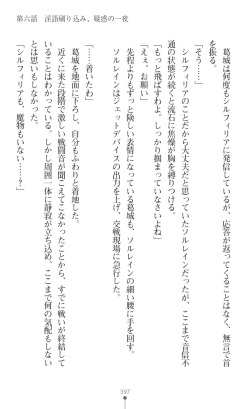 第六話 淫語刷り込み、疑惑の一夜
葛城は何度もシルフィリアに発信しているが、応答が返ってくることはなく、無言で首
を振る。
シルフィリアのことだから大丈夫だと思っていたソルレインだったが、ここまで音信不
通の状態が続くと流石に焦燥が胸を縛りつける。
「もっと飛ばすわよ。しっかり掴まっていなさいよね」
「ええ。お願い」
先程よりもずっと険しい表情になっている葛城が、ソルレインの細い腰に手を回す。
ソルレインはジェットデバイスの出力を上げ、交戦現場に急行した。
「……着いたわ」
葛城を地面に下ろし、自分もふわりと着地した。
近くに来た段階で激しい戦闘音が聞こえてこなかったことから、すでに戦いが終結して
いることはわかっている。しかし周囲一体に静寂が立ち込め、ここまで何の気配もしない
とは思いもしなかった。
「シルフィリアも、魔物もいない……？」
397